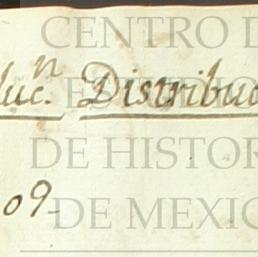 CENTRO D
luc.n Distribuc
DE HISTOR
09_
DE MEXIC